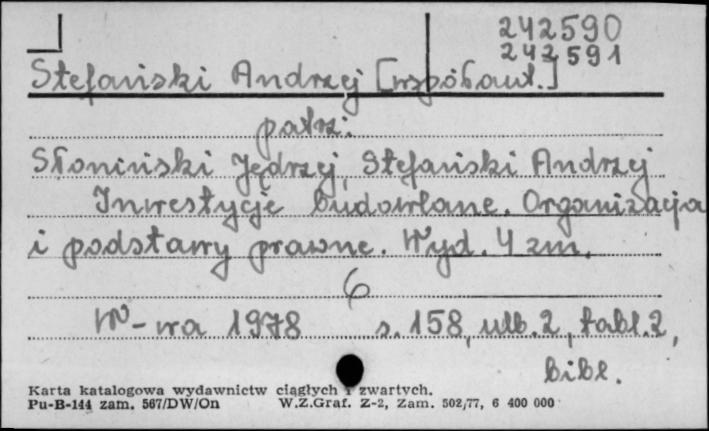 242590
242591
Stefański Andrzej [współaut.]
patrz:
Słoniński Jędrzej, Stefański Andrzej
Inwestycje budowlane. Organizacja
i podstawy prawne. Wyd. 4 zm.
6
W-wa 1978 s. 158, ulb. 2, tabl. 2,
bibl.
Karta katalogowa wydawnictw ciągłych i zwartych.
Pu-B-144 zam. 567/DW/On W.Z.Graf. Z-2, Zam. 502/77, 6 400 000